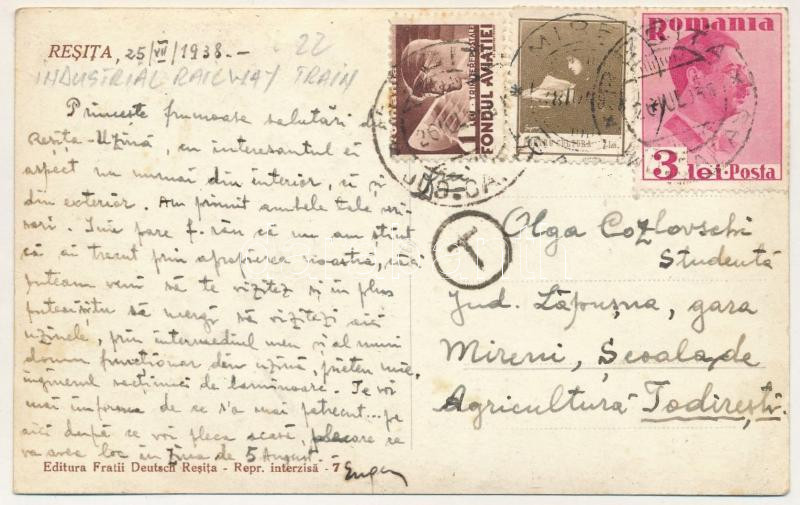 REȘIȚA, 25/VII/1938.-
22
INDUSTRIAL RAILWAY TRAIN
Primește frumoase salutări din
Reșița-Uzină, cu interesantul ei
aspect nu numai din interior, ci și
din exterior. Am primit ambele tale scri-
sori. Îmi pare f. rău că nu am știut
că ai trecut prin apropierea noastră, căci
puteam veni să te vizitez și în plus
să mergi să vizitezi aici
uzinele, prin intermediul meu și al unui
domn funcționar din uzină, prieten mie,
inginerul secțiunii de laminoare. Te voi
mai informa de ce s'a mai petrecut... pe
aici după ce voi pleca acasă, plecare ce
va avea loc în ziua de 5 August.-
Eugen
Editura Fratii Deutsch Reșița - Repr. interzisă - 7
TIMBRU
FONDUL AVIAȚIEI
CULTURA
Romania
3 lei·Posta
T
Olga Cozlovschi
Studentă
Jud. Lăpușna, gara
Mireni, Școala de
Agricultură Todirești.